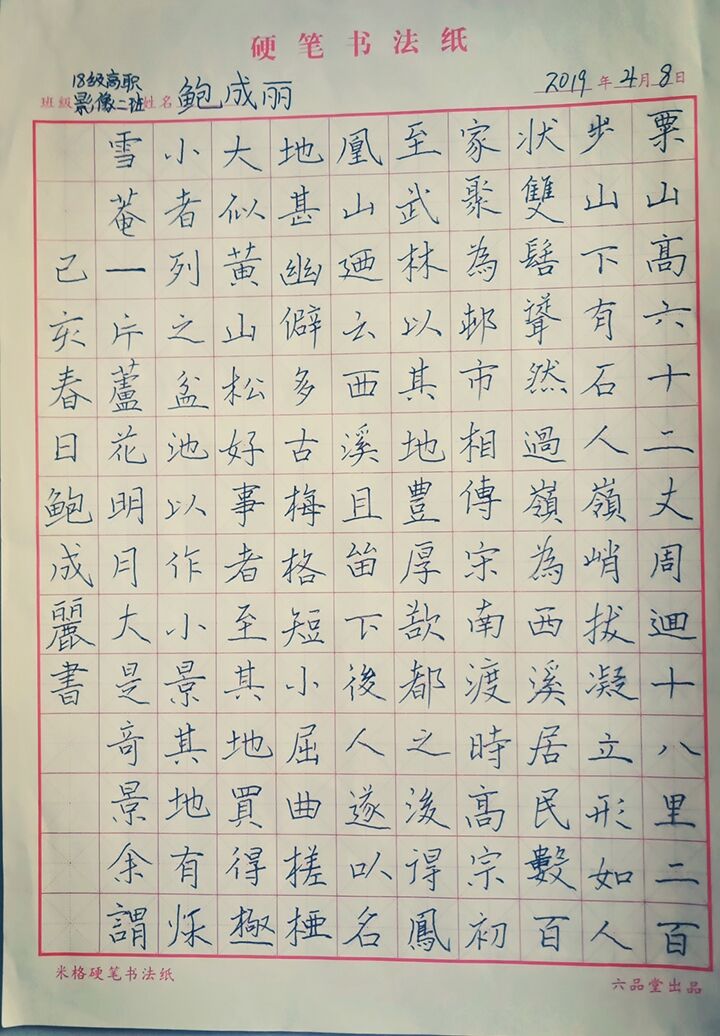 硬笔书法纸
班級 18级高职影像二班 姓名 鲍成丽 2019年4月8日
粟山高六十二丈周迴十八里二百
步山下有石人嶺峭拔凝立形如人
状雙髻聳然過嶺為西溪居民數百
家聚為邨市相傳宋南渡時高宗初
至武林以其地豊厚欲都之後得鳳
凰山廼云西溪且笛下後人遂以名
地甚幽僻多古梅格短小屈曲槎桠
大似黃山松好事者至其地買得極
小者列之盆池以作小景其地有烁
雪菴一片蘆花明月大是奇景余謂
己亥春日鲍成麗書
米格硬笔书法纸 六品堂出品